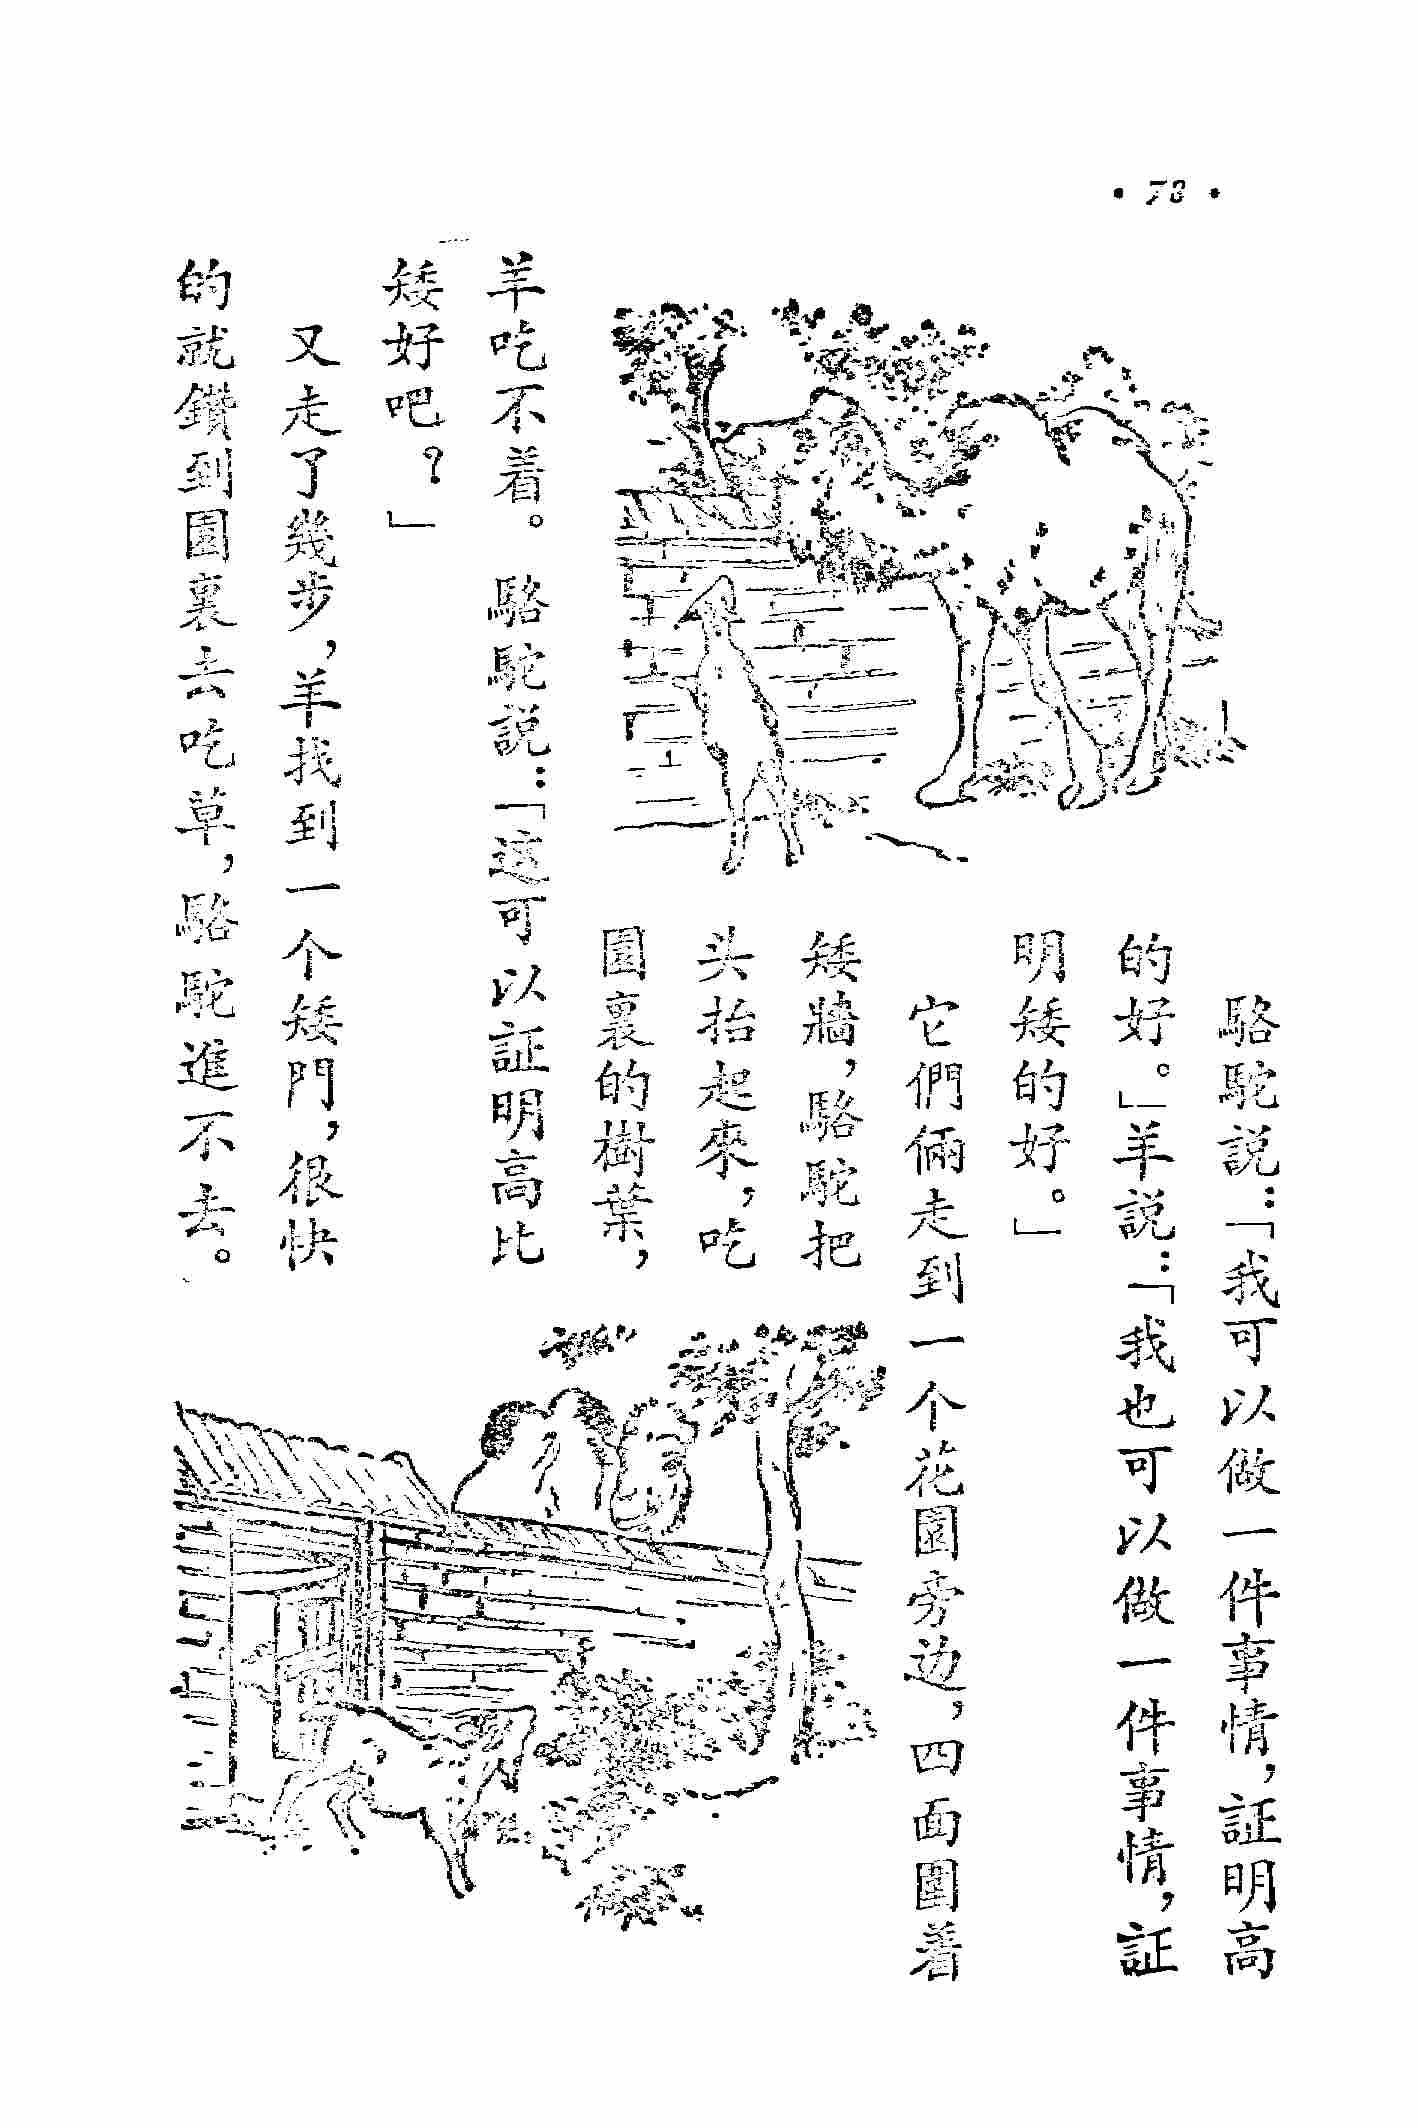 • 78 •
駱駝説：「我可以做一件事情，証明高
的好。」羊説：「我也可以做一件事情，証
明矮的好。」
它們倆走到一个花園旁边，四面圍着
矮牆，駱駝把
头抬起來，吃
園裏的樹葉，
羊吃不着。駱駝説：「這可以証明高比
矮好吧？」
又走了幾步，羊找到一个矮門，很快
的就鑽到園裏去吃草，駱駝進不去。